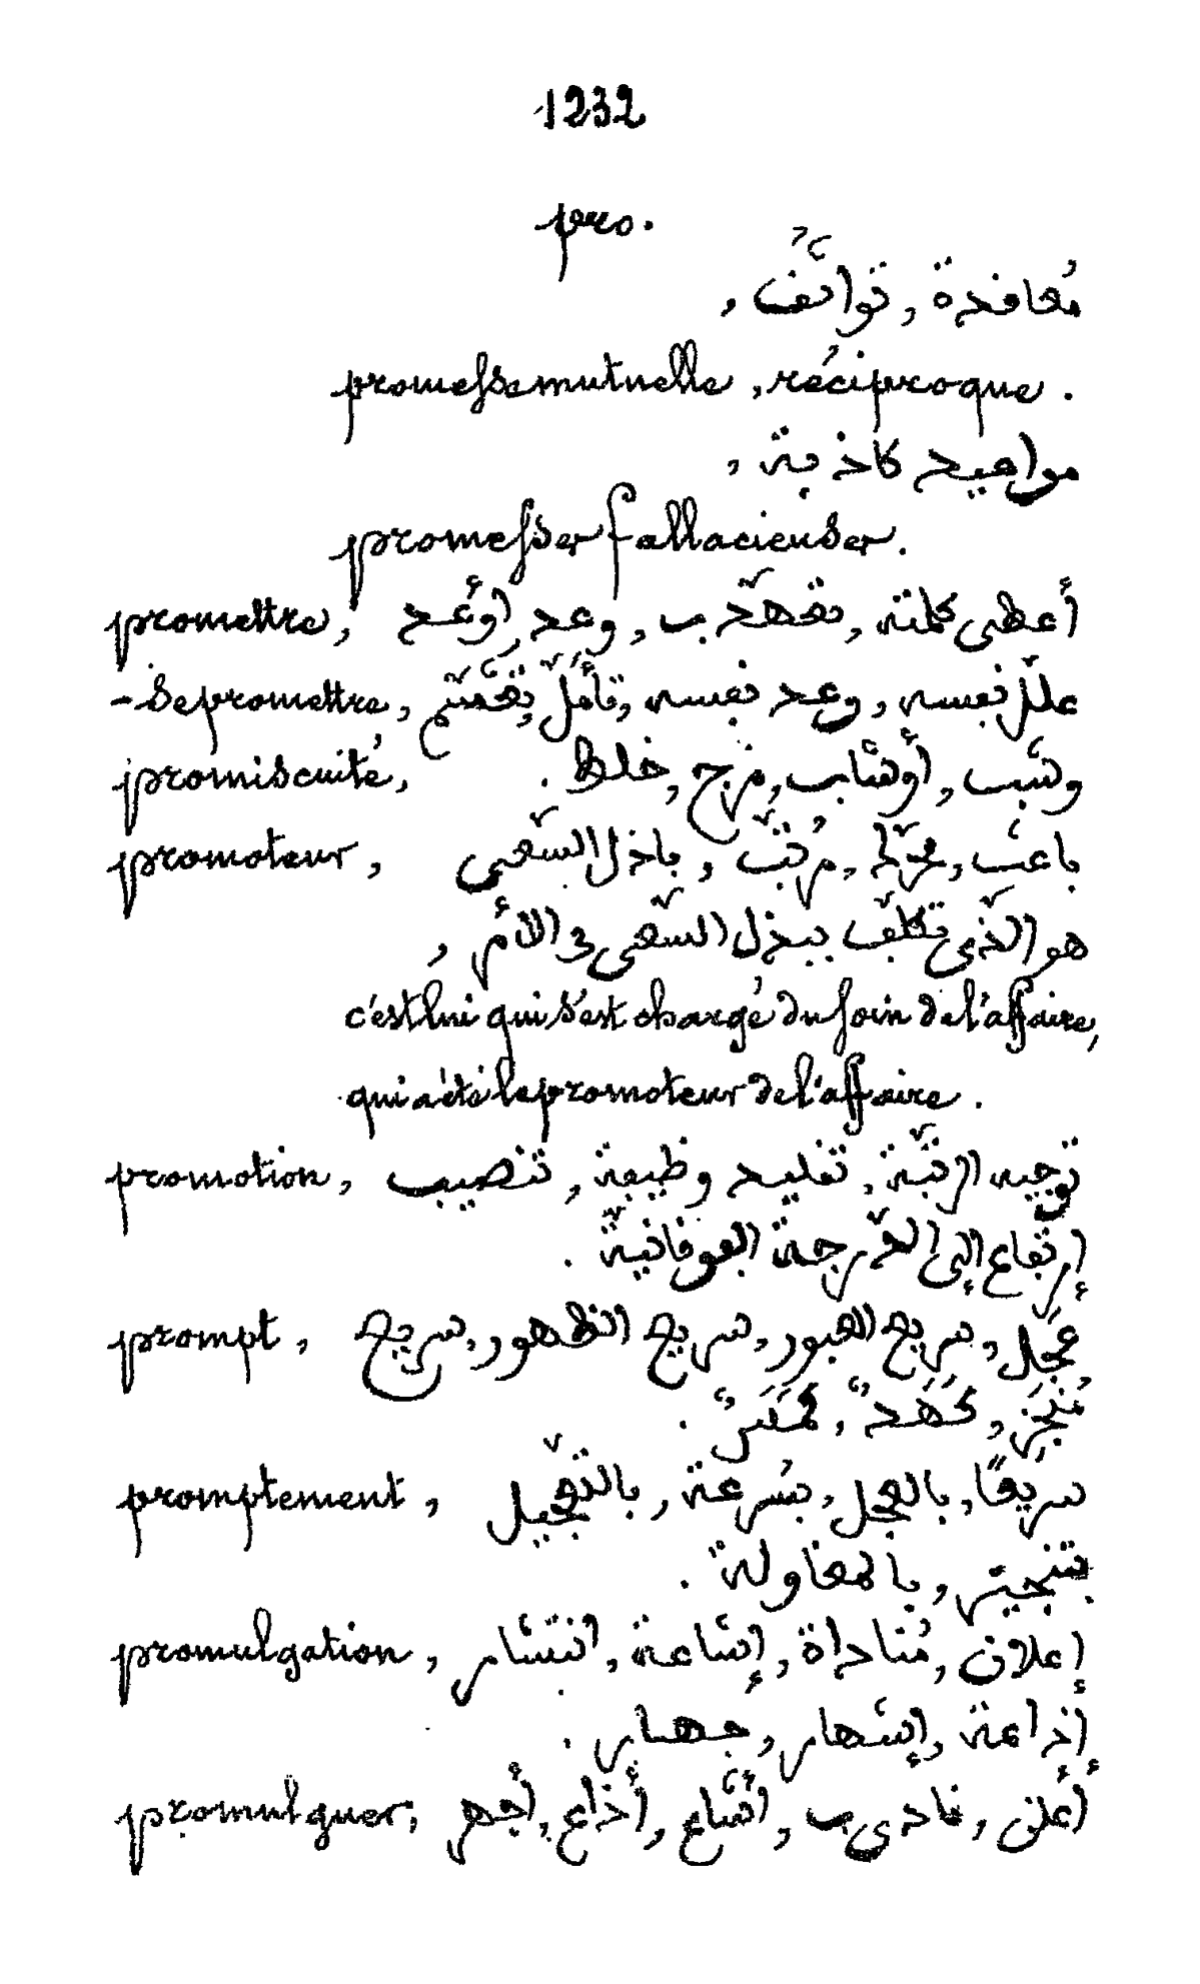 1232
pro.
مُعاقدة, تواثُق,
promesse mutuelle, réciproque.
مواعيد كاذبة,
promesses fallacieuses.
promettre, أعطى كلمته, تعهّد ب, وعد, أوْعد
- se promettre, علّل نفسه, وعد نفسه, تأمّل, تعشّم
promiscuité, وشب, أوشاب, مرج, خلط.
promoteur, باعث, محرّك, مُرتّب, باذل السّعى
هو الذّى تكلّف ببذل السّعى فى الأمر,
c'est lui qui s'est chargé du soin de l'affaire,
qui a été le promoteur de l'affaire.
promotion, توجيه الرتبّة, تقليد وظيفة, تنصيب
إرتفاع إلى الدّرجة الفوقانيّة.
prompt, عَجُل, سريع العبور, سريع الظهور, سريع
مُنْجَز,
promptement, سريعًا, بالعجل, بسُرعة, بالتّعجيل
بتنجيز, بالمقاولة.
promulgation, إعلان, مُناداة, إشاعة, انتشار
إذاعة, إشهار, جهار.
promulguer, أعلن, نادى ب, أشاع, أذاع, أجهر